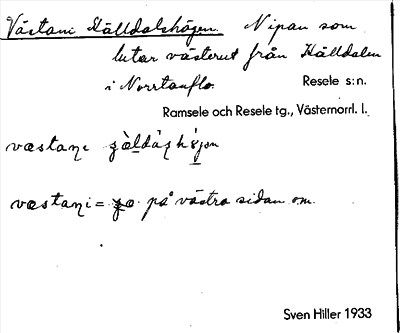 Västani Källdalshögen. Nipan som
lutar västerut från Källdalen
i Norrtanflo.
Resele s:n.
Ramsele och Resele tg., Västernorrl. l.
væstani
væstani = på västra sidan om.
Sven Hiller 1933